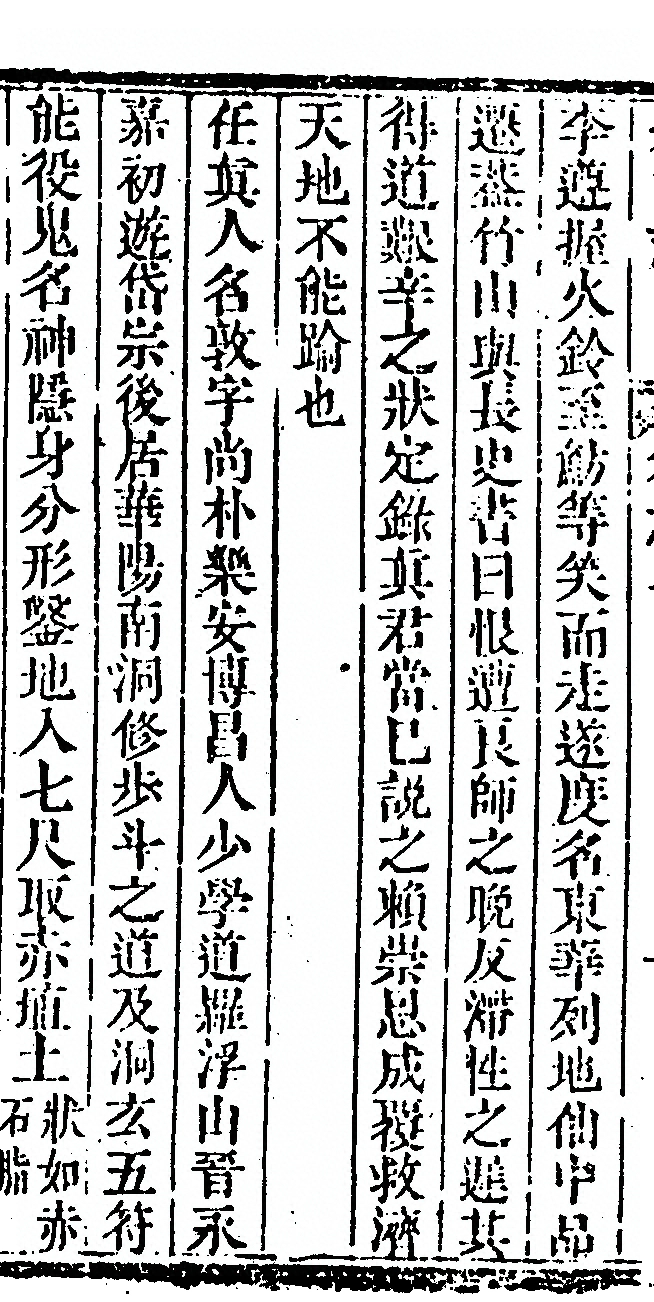 李遵握火鈴至魴等笑而走遂度名東華列地仙中品
遷蓋竹山與長史書曰恨遭良師之晚反滯性之遲其
得道艱辛之狀定錄真君當已說之賴崇恩成擬救濟
天地不能踰也
任真人名敦字尚朴樂安博昌人少學道羅浮山晉永
嘉初遊岱宗後居華陽南洞修步斗之道及洞玄五符
能役鬼名神隱身分形鑿地入七尺取赤埴土
狀如赤
石脂